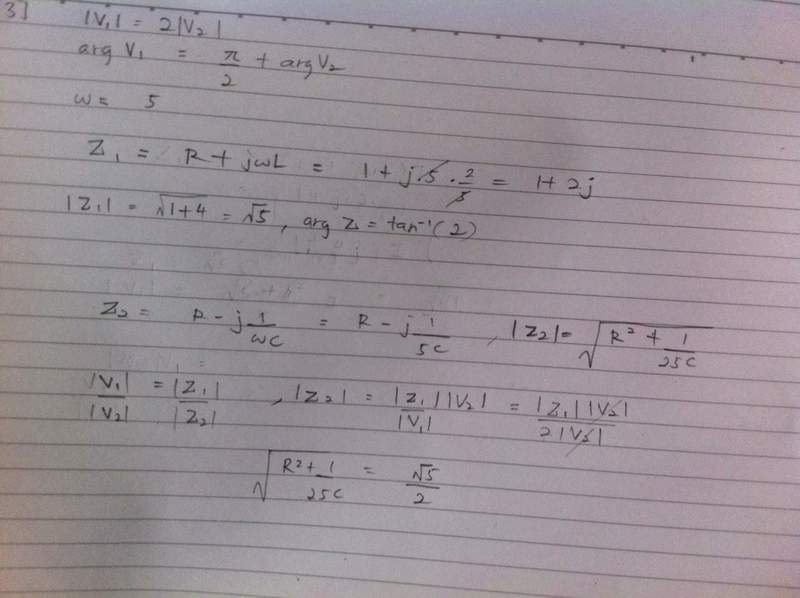 3]
|V₁| = 2|V₂|
arg V₁ = π/2 + arg V₂
ω = 5
Z₁ = R + jωL = 1 + j.5.2/5 = 1+2j
|Z₁| = √(1+4) = √5, arg Z₁ = tan⁻¹(2)
Z₂ = R - j 1/ωC = R - j 1/5C, |Z₂| = √(R² + 1/25C)
|V₁|/|V₂| = |Z₁|/|Z₂|, |Z₂| = |Z₁||V₂|/|V₁| = |Z₁||V₂|/2|V₂|
√(R² + 1/25C) = √5/2